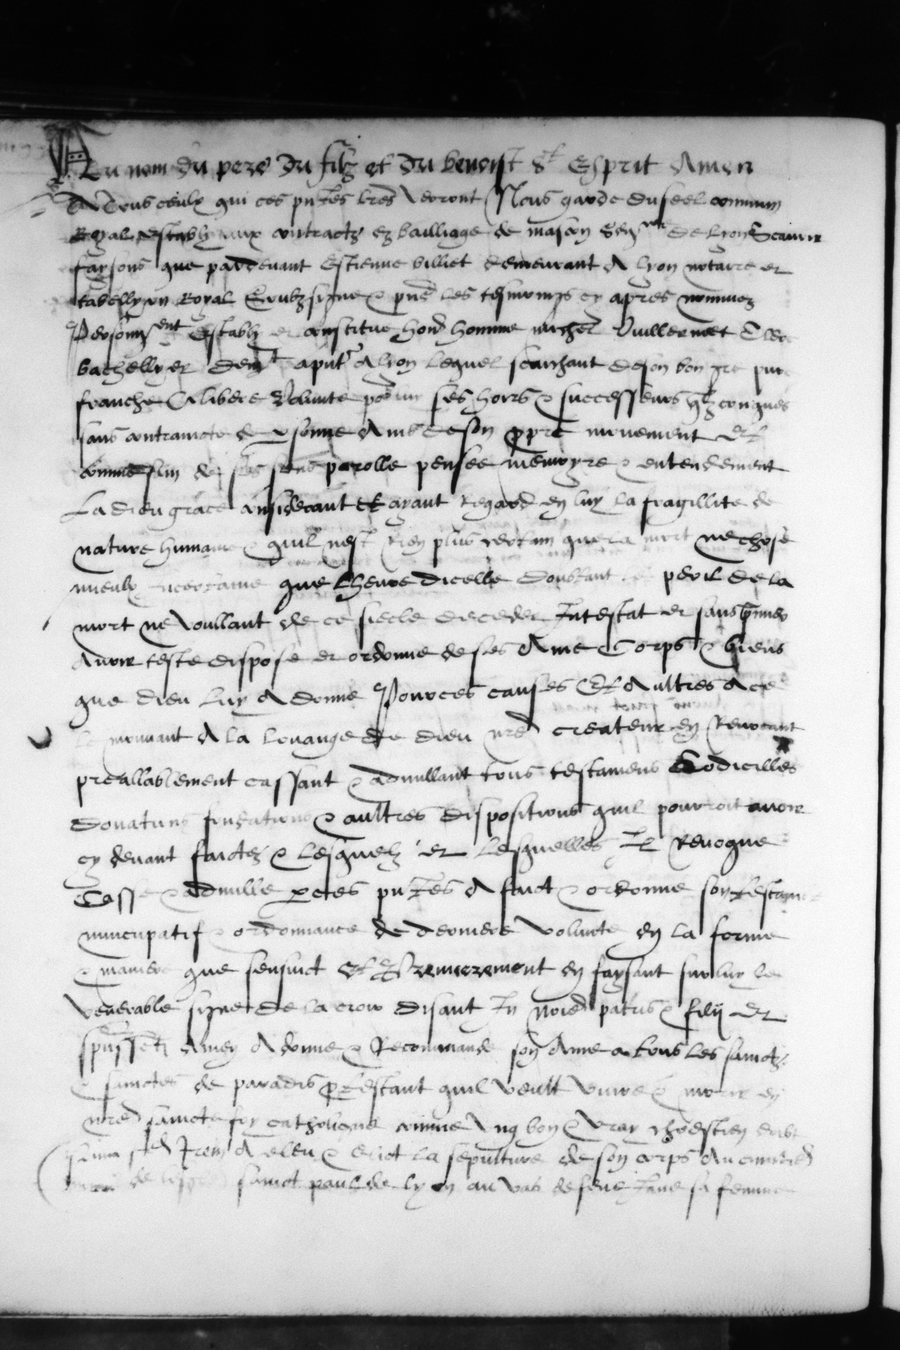 Au nom du pere du filz et du benoist St Esprit Amen
A Tous ceulx qui ces pntes lres verront Nous garde du seel commun
Royal estably aux contractz ez bailliage de mascon Senesen de Lyon Scavoir
faysons que pardevant Estienne billiet demeurant A lyon notaire et
tabellyon Royal Soubzsigne & pns les tesmoings cy apres nommez
Personnent Estably et constitue hons homme michel Vuillermet
bachellyer demt A lyon lequel scaichant de son bon gre pure
franche & libere Volunte por luy ses hoirs & successeurs qlzconques
sans contraincte de psonne Ains de son ppre mouvement Et
comme sain de ses sens parolle pensee memoyre & entendement
La dieu grace considerant Et ayant Regard en luy la fragillite de
nature humaine & quil nest Rien plus certain que la mort ne chose
mieulx incertaine que lheure dicelle doubtant le peril de la
mort ne voullant de ce siecle deceder Intestat et sans premier
Avoir teste dispose et ordonne de ses Ame Corps & biens
que dieu luy A donne Pour ces causes Et Aultres A ce
le mouvant A la louange de dieu nre createur En Revocant
preallablement cassant & adnullant tous testamens Codicilles
donations fondations & aultres dispositions quil pourroit avoir
cy devant faictez & lesquelz et lesquelles Il Revoque
Casse & adnulle p ces pntes A faict & ordonne son testament
nuncupatif & ordonnance de derniere volunte En la forme
& maniere que sensuict Et premierement En faysant sur luy le
venerable signe de la croix disant In noie patris & filij Et
spus sti Amen A donne & Recommande son Ame A tous les sainctz
& sainctes de paradis ptestant quil veult vivre & morir en
nre saincte foy catholique comme Ung bon & vray chrestien doibt
Item A eleu & elict la sepulture de son corps Au
sainct paul de lyon au vas de feue Jane sa femme